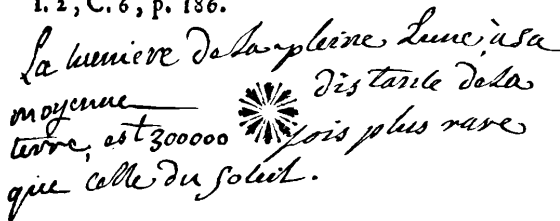 l. 2, C. 6, p. 186.
La lumiere de la pleine Lune, à sa
moyenne distance de la
terre, est 300000 fois plus rare
que celle du Soleil.